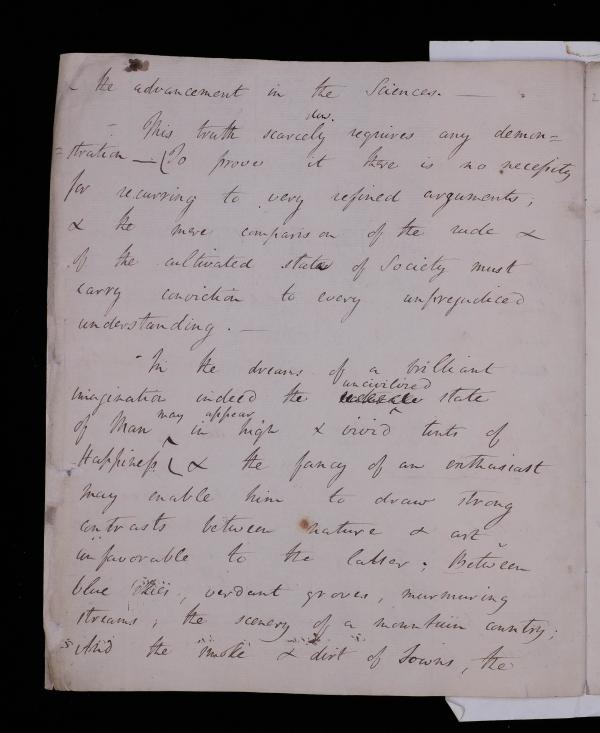 the advancement in the Sciences. —
This truth scarcely requires any demon=
=stration — (To prove it there is no necessity
for recurring to very refined arguments;
& the mere comparison of the rude &
of the cultivated state of Society must
carry conviction to every unprejudiced
understanding. —
In the dreams of a brilliant
uncivilized
imagination indeed the state
may appear
of Man in high & vivid tints of
Happiness ( & the fancy of an enthusiast
may enable him to draw strong
contrasts between nature & art
unfavorable to the latter; Between
blue skies, verdant groves, murmuring
streams, the scenery of a mountain country;
And the smoke & dirt of Towns, the